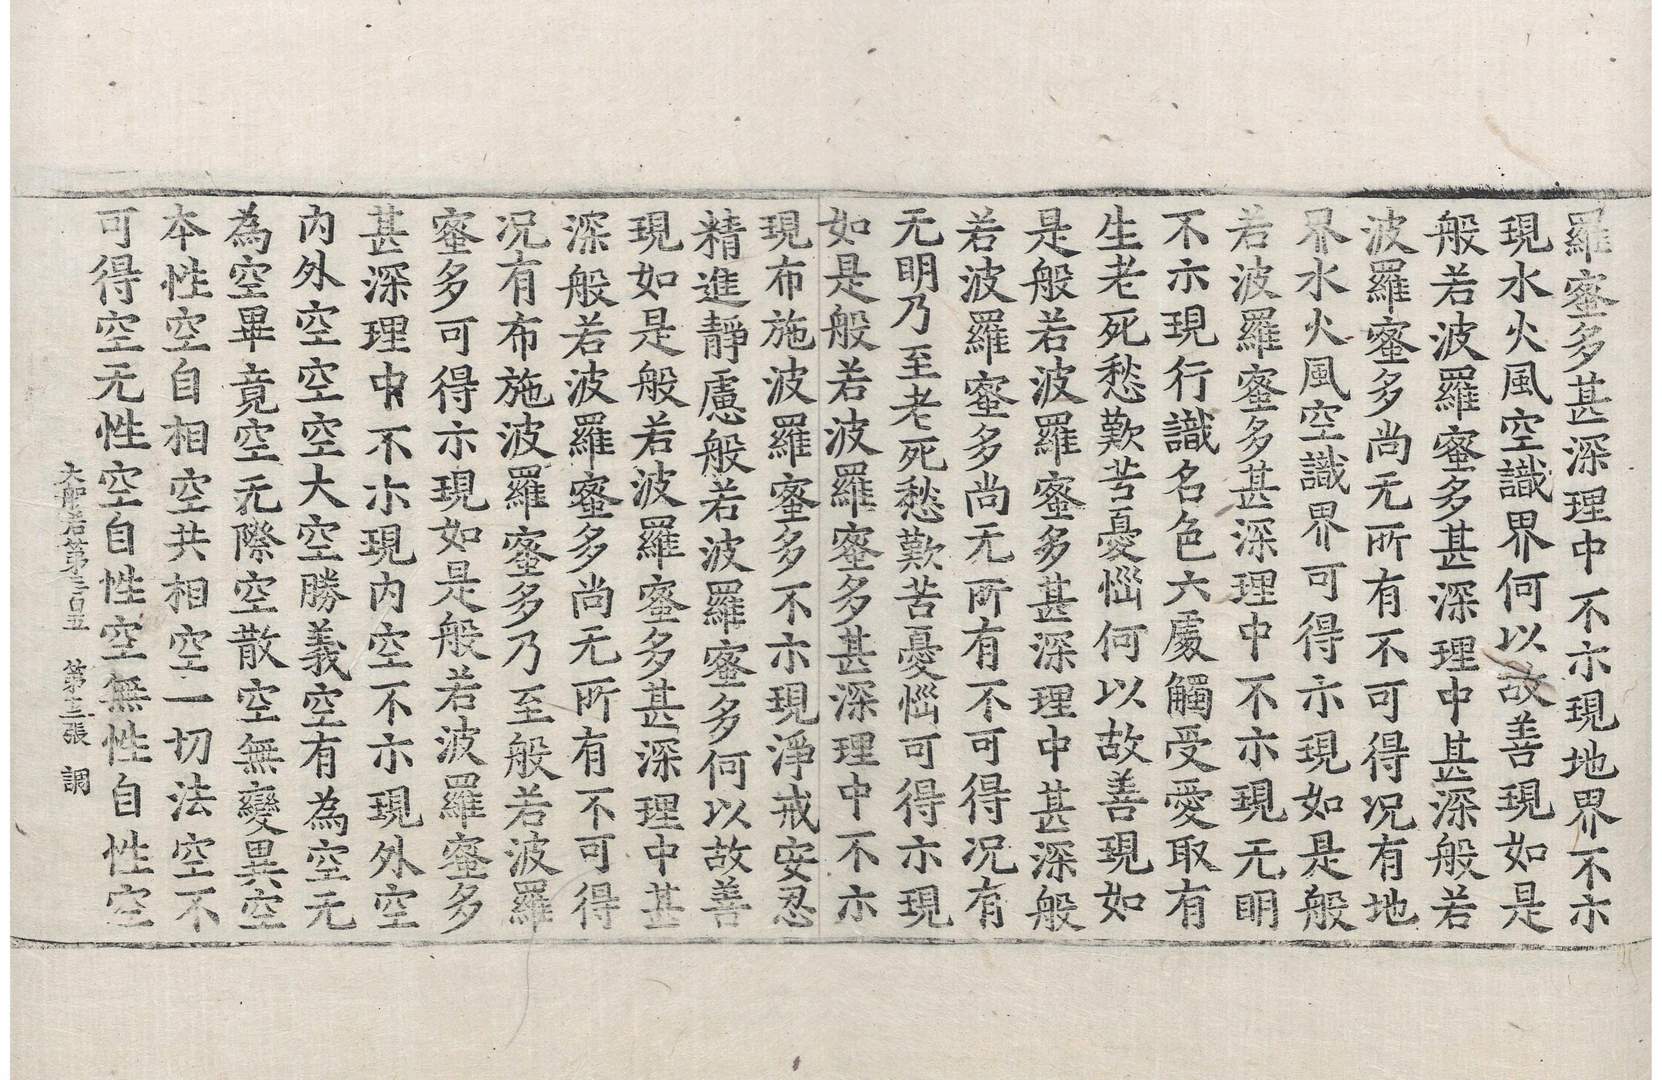 羅蜜多甚深理中不示現地界不示
現水火風空識界何以故善現如是
般若波羅蜜多甚深理中甚深般若
波羅蜜多尚无所有不可得况有地
界水火風空識界可得示現如是般
若波羅蜜多甚深理中不示現无明
不示現行識名色六處觸受愛取有
生老死愁歎苦憂惱何以故善現如
是般若波羅蜜多甚深理中甚深般
若波羅蜜多尚无所有不可得况有
无明乃至老死愁歎苦憂惱可得示現
如是般若波羅蜜多甚深理中不示
現布施波羅蜜多不示現淨戒安忍
精進靜慮般若波羅蜜多何以故善
現如是般若波羅蜜多甚深理中甚
深般若波羅蜜多尚无所有不可得
况有布施波羅蜜多乃至般若波羅
蜜多可得示現如是般若波羅蜜多
甚深理中不示現内空不示現外空
内外空空空大空勝義空有為空无
為空畢竟空无際空散空無變異空
本性空自相空共相空一切法空不
可得空无性空自性空無性自性空
大般若第三百五 第十三張 調